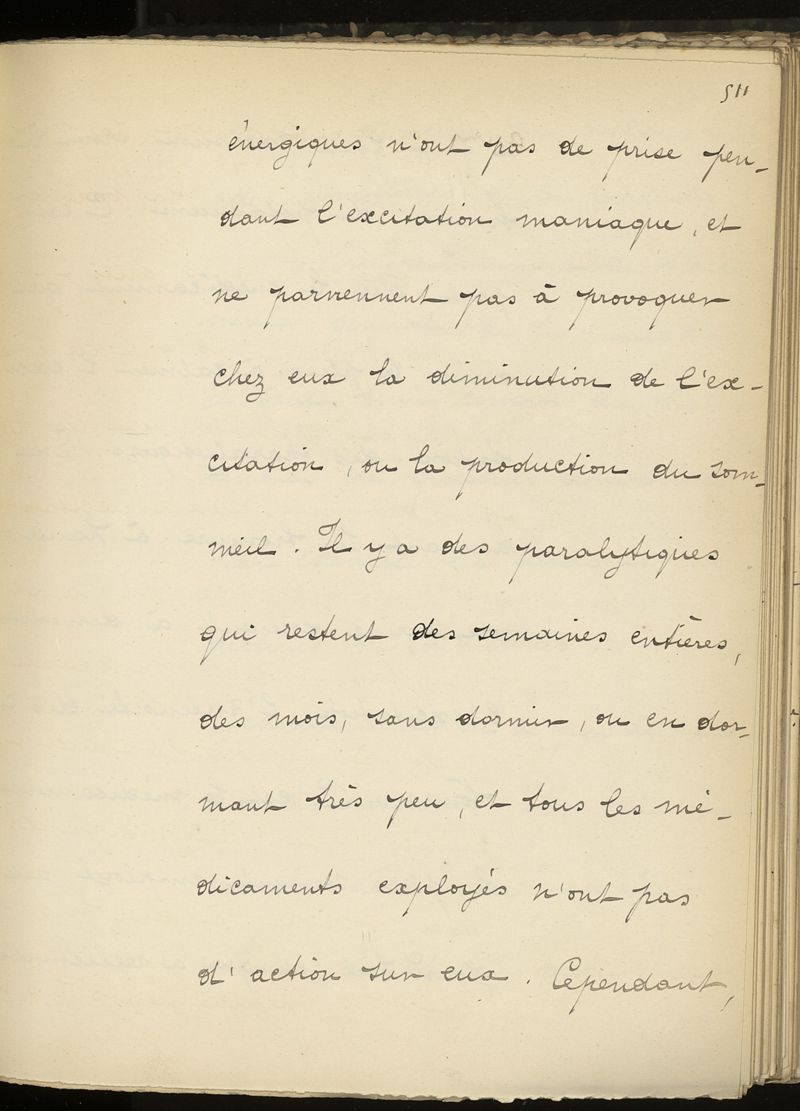 511
énergiques n'ont pas de prise pen-
dant l'excitation maniaque, et
ne parviennent pas à provoquer
chez eux la diminution de l'ex-
citation, ou la production du som-
meil. Il y a des paralytiques
qui restent des semaines entières,
des mois, sans dormir, ou en dor-
mant très peu, et tous les mé-
dicaments exployés n'ont pas
d'action sur eux. Cependant,